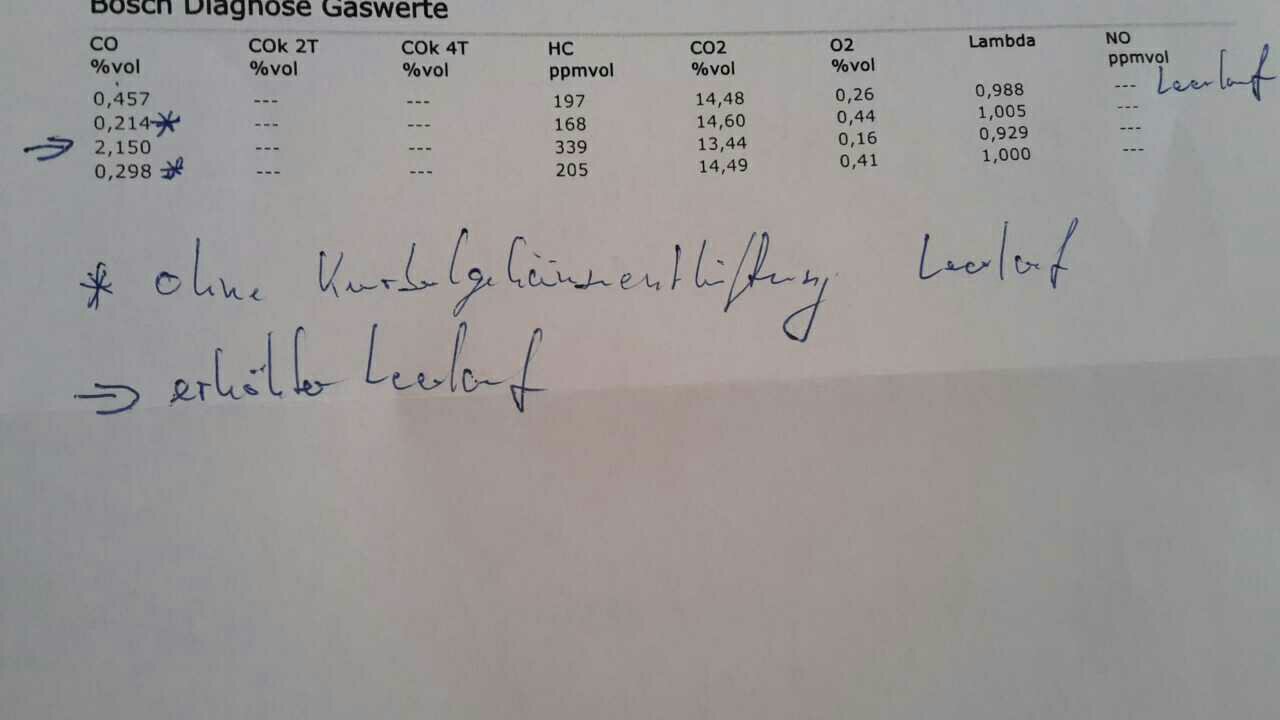 Bosch Diagnose Gaswerte
CO COk 2T COk 4T HC CO2 O2 Lambda NO
%vol %vol %vol ppmvol %vol %vol ppmvol
0,457 --- --- 197 14,48 0,26 0,988 --- Leerlauf
0,214* --- --- 168 14,60 0,44 1,005 ---
→ 2,150 --- --- 339 13,44 0,16 0,929 ---
0,298 * --- --- 205 14,49 0,41 1,000 ---
* ohne Kurbelgehäuseentlüftung Leerlauf
→ erhöhter Leerlauf